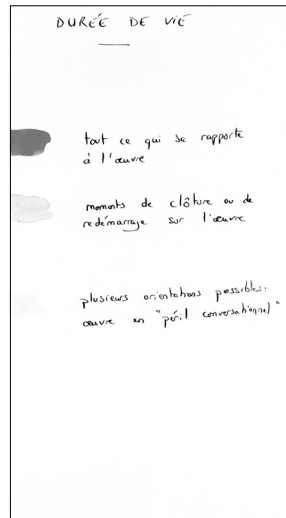 DURÉE DE VIE
tout ce qui se rapporte
à l'œuvre
moments de clôture ou de
redémarrage sur l'œuvre
plusieurs orientations possibles:
œuvre en "péril conversationnel"